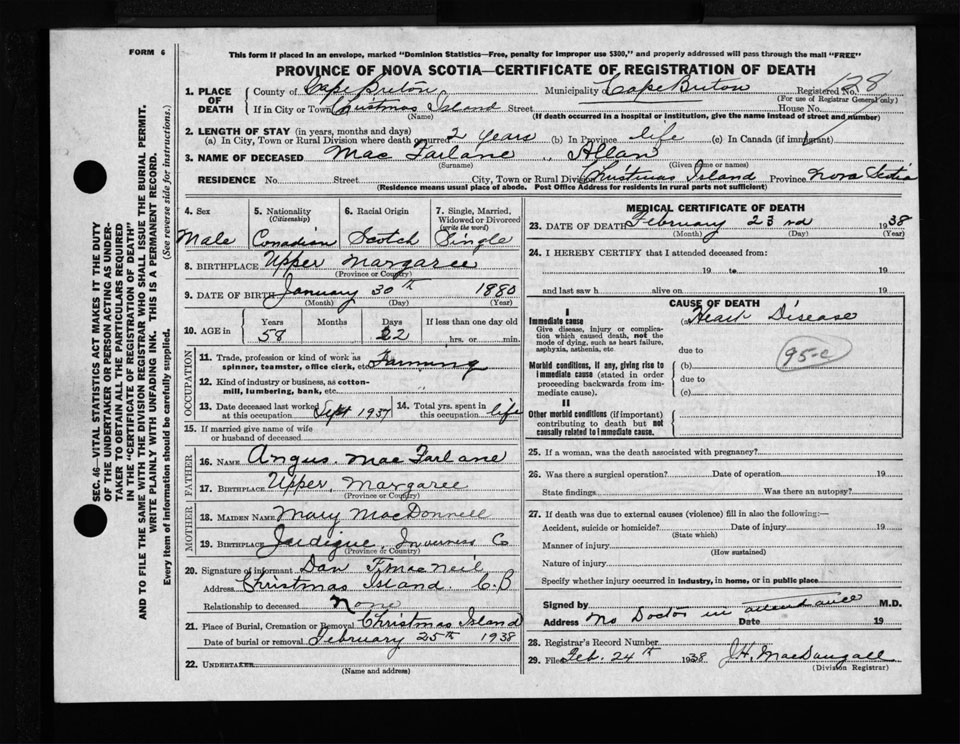 FORM 6
This form if placed in an envelope, marked "Dominion Statistics—Free, penalty for improper use $300," and properly addressed will pass through the mail "FREE"
PROVINCE OF NOVA SCOTIA—CERTIFICATE OF REGISTRATION OF DEATH
1. PLACE OF DEATH County of Cape Breton Municipality Cape Breton Registered No. 128
(For use of Registrar General only)
If in City or Town Christmas Island Street House No.
(Name) (If death occurred in a hospital or institution, give the name instead of street and number)
2. LENGTH OF STAY (in years, months and days)
(a) In City, Town or Rural Division where death occurred 2 years (b) In Province life (c) In Canada (if immigrant)
3. NAME OF DECEASED Mac Farlane, Allan
(Surname) (Given name or names)
RESIDENCE No. Street City, Town or Rural Division Christmas Island Province Nova Scotia
(Residence means usual place of abode. Post Office Address for residents in rural parts not sufficient)
4. Sex 5. Nationality (Citizenship) 6. Racial Origin 7. Single, Married, Widowed or Divorced (write the word)
Male Canadian Scotch Single
8. BIRTHPLACE Upper Margaree
(Province or Country)
9. DATE OF BIRTH January 30th 1880
(Month) (Day) (Year)
10. AGE in Years Months Days If less than one day old
58 22 hrs. or min.
OCCUPATION
11. Trade, profession or kind of work as spinner, teamster, office clerk, etc. Farming
12. Kind of industry or business, as cotton-mill, lumbering, bank, etc. "
13. Date deceased last worked at this occupation Sept 1937 14. Total yrs. spent in this occupation life
15. If married give name of wife or husband of deceased
FATHER
16. NAME Angus Mac Farlane
17. BIRTHPLACE Upper Margaree
(Province or Country)
MOTHER
18. MAIDEN NAME Mary MacDonnell
19. BIRTHPLACE Judique, Inverness Co
(Province or Country)
20. Signature of informant Dan F. MacNeil
Address Christmas Island C.B
Relationship to deceased None
21. Place of Burial, Cremation or Removal Christmas Island
Date of burial or removal February 25th 1938
22. UNDERTAKER
(Name and address)
MEDICAL CERTIFICATE OF DEATH
23. DATE OF DEATH February 23rd 1938
(Month) (Day) (Year)
24. I HEREBY CERTIFY that I attended deceased from:
19 to 19
and last saw h alive on 19
CAUSE OF DEATH
I
Immediate cause (a) Heart Disease
Give disease, injury or complication which caused death, not the mode of dying, such as heart failure, asphyxia, asthenia, etc.
due to
95-c
Morbid conditions, if any, giving rise to immediate cause (stated in order proceeding backwards from immediate cause).
(b)
due to
(c)
II
Other morbid conditions (if important) contributing to death but not causally related to immediate cause.
25. If a woman, was the death associated with pregnancy?
26. Was there a surgical operation? Date of operation 19
State findings Was there an autopsy?
27. If death was due to external causes (violence) fill in also the following:—
Accident, suicide or homicide? Date of injury 19
(State which)
Manner of injury
(How sustained)
Nature of injury
Specify whether injury occurred in industry, in home, or in public place
Signed by M.D.
Address No Doctor in attendance Date 19
28. Registrar's Record Number
29. Filed Feb. 24th 1938 J.H. MacDougall
(Division Registrar)
SEC. 46—VITAL STATISTICS ACT MAKES IT THE DUTY
OF THE UNDERTAKER OR PERSON ACTING AS UNDER-
TAKER TO OBTAIN ALL THE PARTICULARS REQUIRED
IN THE "CERTIFICATE OF REGISTRATION OF DEATH"
AND TO FILE THE SAME WITH THE DIVISION REGISTRAR WHO SHALL ISSUE THE BURIAL PERMIT.
WRITE PLAINLY WITH UNFADING INK. THIS IS A PERMANENT RECORD.
Every item of information should be carefully supplied. (See reverse side for instructions.)